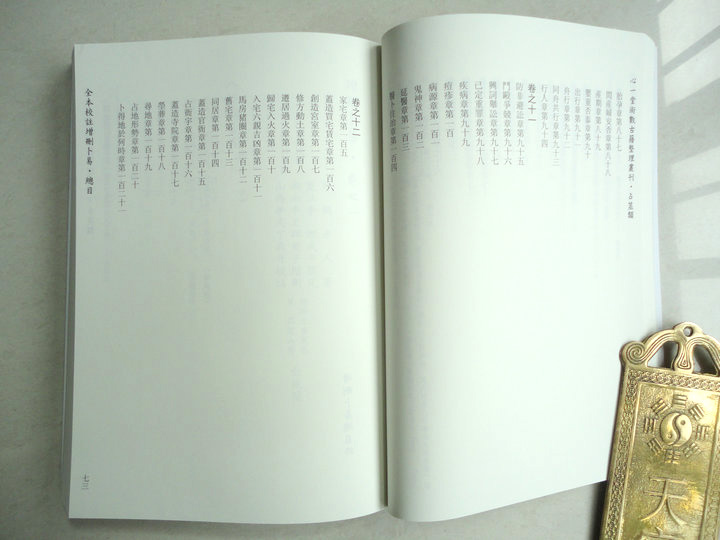 心一堂術數古籍整理叢刊·占筮類
胎孕章第八十七
安否章第八十八
產期章第八十九
嬰童否泰章第九十
出行章第九十一
舟行章第九十二
同舟共行章第九十三
行人章第九十四
卷之十一
防非避訟章第九十五
鬥毆爭競章第九十六
興詞舉訟章第九十七
已定重罪章第九十八
疾病章第九十九
痘疹章第一百
病源章第一百一
鬼神章第一百二
延醫章第一百三
醫卜往治章第一百四
卷之十二
家宅章第一百五
蓋造買宅賃宅章第一百六
創造宮室章第一百七
修方動土章第一百八
遷居過火章第一百九
歸宅入火章第一百十
入宅六親吉凶章第一百十一
馬房豬圈章第一百十二
舊宅章第一百十三
同居章第一百十四
蓋造官衙章第一百十五
占衙宇章第一百十六
蓋造寺院章第一百十七
塋葬章第一百十八
尋地章第一百十九
占地形勢章第一百二十
卜得地於何時章第一百二十一
全本校註增刪卜易·總目
七三
天